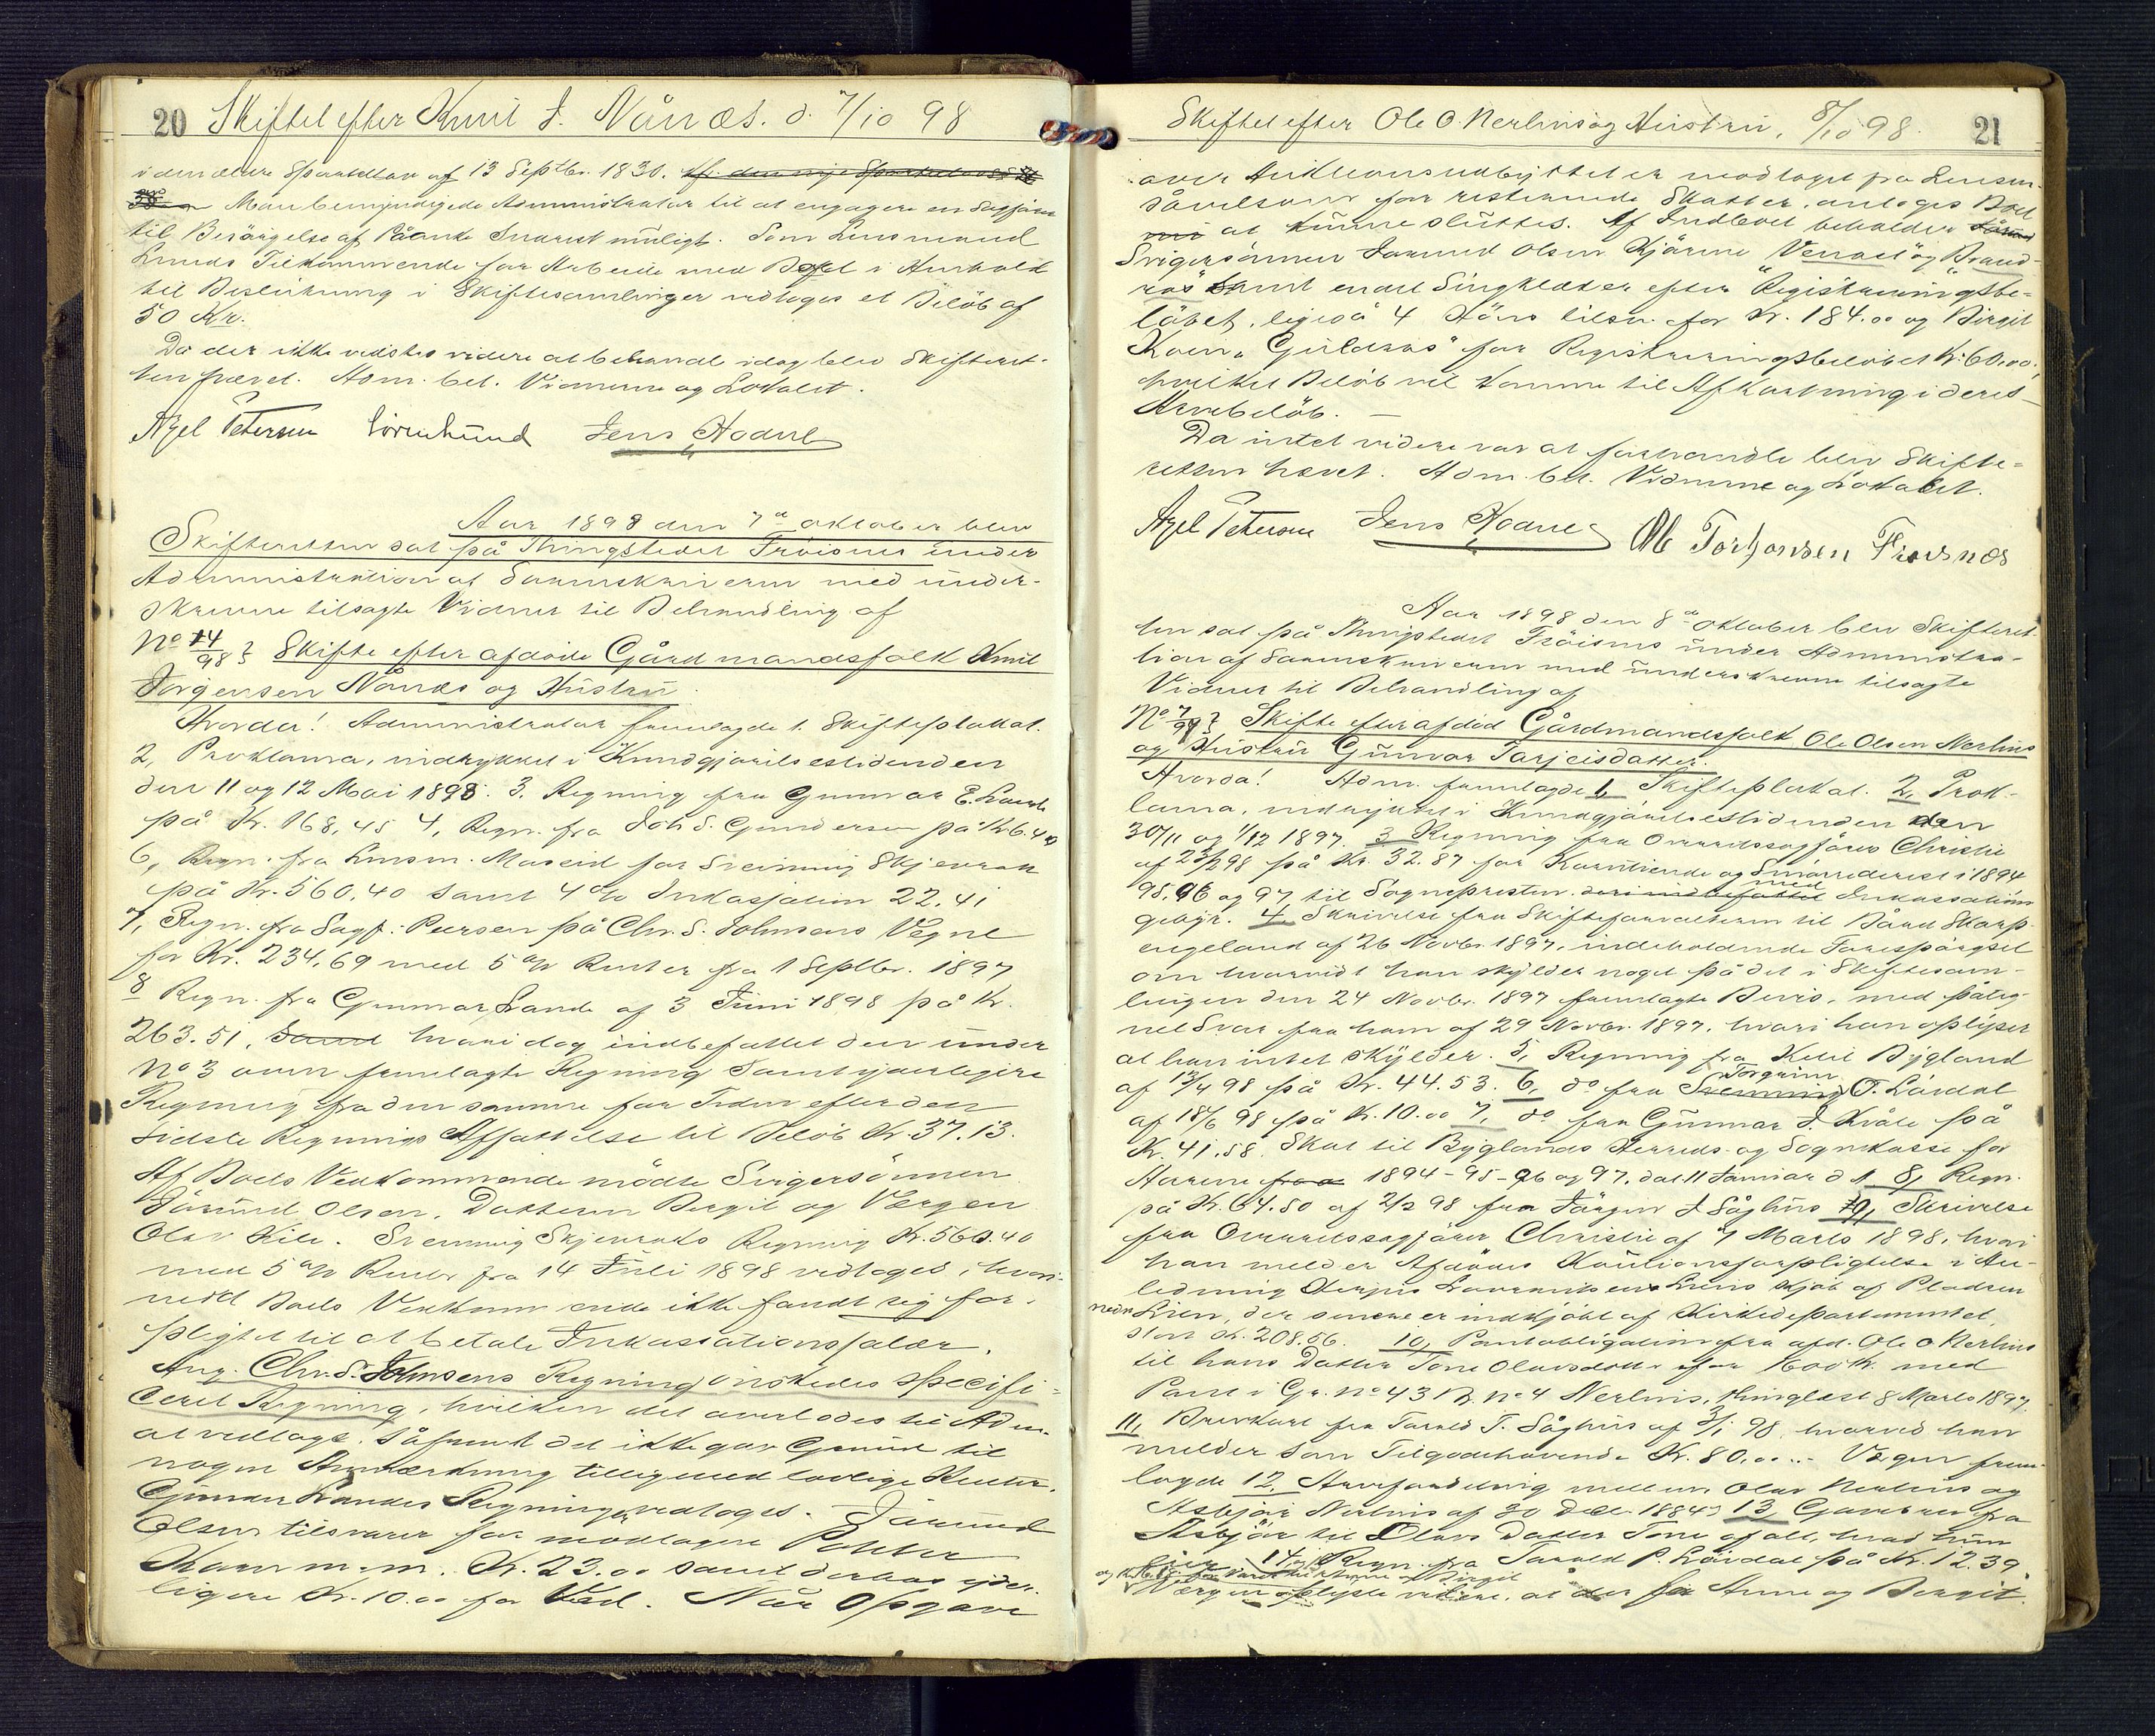 20 Skiftet efter Knut J. Nånes. d. 7/10 98
i den ældre Sportellov af 13 Septbr. 1830. cfr. den nye Sportellovs §
38 Man bemyndigede Administrator til at engagere en Sagfører
til Besørgelse af Påanke Snarest muligt. Som Lensmand
Lunds Tilkommende for Arbeide med Boet i Henhold
til Beslutning i Skiftesamlinger vedtoges et Beløb af
50 Kr.
Da der ikke vidstes videre at behandl idag blev Skifteret-
ten hævet. Adm. bet. Vidnerne og Lokalet.
Axel Petersen Jens Hodne
Aar 1898 den 7de oktober blev
Skifteretten sat på Thingstedet Frøisnes under
Administration af Sorenskriveren med under-
skrevne tilsagte Vidner til Behandling af
No 14/98: Skifte efter afdøde Gårdmandsfolk Knut
Jørgensen Nånes og Hustru.
Hvorda! Administrator fremlagde 1. Skifteplakat.
2, Proklama, indrykket i Kundgjørelsestidenden
den 11 og 12 Mai 1898. 3. Regning fra Gunnar E. Lande
på Kr. 168,45 4, Regn. fra Joh S. Gundersen på Kr 6.40
6, Regn. fra Lensm. Moseid for Sveinung Skjevrak
på Kr. 560,40 samt 4 % Inkasation 22.41
7, Regn. fra Sagf. Peersen på Chr. S. Johnsens Vegne
for Kr. 234,69 med 5 % Renter fra 1 Septbr. 1897
8 Regn. fra Gunnar Lande af 3 Juni 1898 på Kr.
263.51, Samt hvori dog indbefattet den under
No 3 oven fremlagte Regning Samt yderligere
Regning fra den samme for Tiden efter den
sidste Regnings Affattelse til Beløb Kr. 37.13.
Af Boets Vedkommende mødte Svigersønnen
Jørund Olsen, Datteren Bergit og Værgen
Olav Kile. Sveinung Skjevraks Regning Kr. 560.40
med 5 % Renter fra 14 Juli 1898 vedtoges, hvori-
mod Boets Vedkommende ikke fandt sig for-
pligtet til at betale Inkassationssalær.
Ang. Chr. S. Johnsens Regning ønskedes specifi-
ceret Regning, hvilken det overlodes til Adm.
at vedtage, såfremt det ikke gav Grund til
nogen Anmærkning tilligemed lovlige Renter.
Gunnar Landes Regning vedtoges. Jørund
Olsen tilsvarer for modtagne Potter
Korn m.m. Kr. 23.00 samt derhos yder-
ligere Kr. 10.00 for Ved. Når Opgave
Skiftet efter Ole O. Nerlins og Hustru, 8/10 98. 21
over Auktionsudbyttet er modtaget fra Lensm.
såvelsom for resterende Skatter, antoges Boet
at kunne sluttes. Af Indboet beholder
Svigersønnen Jørund Olsen Kjørene og Brand-
ros samt endel Gangklæder efter Registreringsbe-
løbet, ligeså 4 Høns tils. for Kr. 184.00 og Birgit
Koen "Guldros" for Registreringsbeløbet Kr. 60.00;
hvilket Beløb vil komme til Afkortning i deres
Arvebeløb. —
Da intet videre var at forhandle blev Skifte-
retten hævet. Adm. bet. Vidnerne og Lokalet.
Axel Petersen Jens Hodne Ole Torjonsen Frøisnes
Aar 1898 den 8de oktober blev Skifteret-
ten sat på Thingstedet Frøisnes under Administra-
tion af Sorenskriveren med underskrevne tilsagte
Vidner til Behandling af
No 7/97: Skifte efter afdød Gårdmandsfolk Ole Olsen Nerlins
og Hustru Gunvor Tarjeisdatter.
Hvorda! Adm. fremlagde 1, Skifteplakat. 2, Prok-
lama, indrykket i Kundgjørelsestidenden den
30/11 og 1/12 1897 3 Regning fra Overretssagfører Christie
af 25/2 98 på Kr. 32.87 for Korntiende og Smørrederest i 1894
95, 96 og 97 til Sognepresten. deri indbefattet med Inkassations
gebyr. 4, Skrivelse fra Skifteforvalteren til Bård Skarp-
engeland af 26 Novbr. 1897, indeholdende Forespørgsel
om hvorvidt han skylder noget på det i Skiftesam-
lingen den 24 Novbr. 1897 fremlagte Bevis, med påteg-
net Svar fra ham af 29 Novbr. 1897, hvori han oplyser
at han intet skylder. 5, Regning fra Ketil Bygland
af 13/4 98 på Kr. 44.53. 6, do fra Sveinung Torgrim T. Lordal
af 18/6 98 på Kr. 10.00 7, do fra Gunnar J. Kråle på
Kr. 41.58. Skat til Byglands Herreds og Sognekasse for
Aarene fra 1894-95-96 og 97, dat 11 Januar d A 8, Regn.
på Kr. 64.80 af 2/2 98 fra Jørgen J Såghus 9, Skrivelse
fra Overretssagfører Christie af 7 Marts 1898, hvori
han melder Afdødes Kautionsforpligtelse i An-
ledning Terjus Lauritsens Liens Kjøb af Pladsen
nedre Lien, der senere er indkjøbt af Kirkedepartementet,
stor Kr. 208.56. 10, Pantobligation fra afd. Ole O Nerlins
til hans Datter Tone Olavsdatter for 1600 Kr. med
Pant i Gr. no 43 B. no 4 Nerlins, thinglæst 8 Marts 1897
11, Brevkort fra Tarald T. Såghus af 3/1 98, hvorved han
melder som Tilgodehavende Kr. 80.00. Værgen frem-
lagde 12, Arvefordeling mellem Olav Nerlins og
Asbjør Nerlins af 30 Dec 1884, 13, Gavebrev fra
Asbjør til Olavs Datter Tone af alt, hvad hun
eier 14, Regn. fra Tarald P. Lordal på Kr. 12.39
Værgen oplyste videre, at der for Anne og Bergit